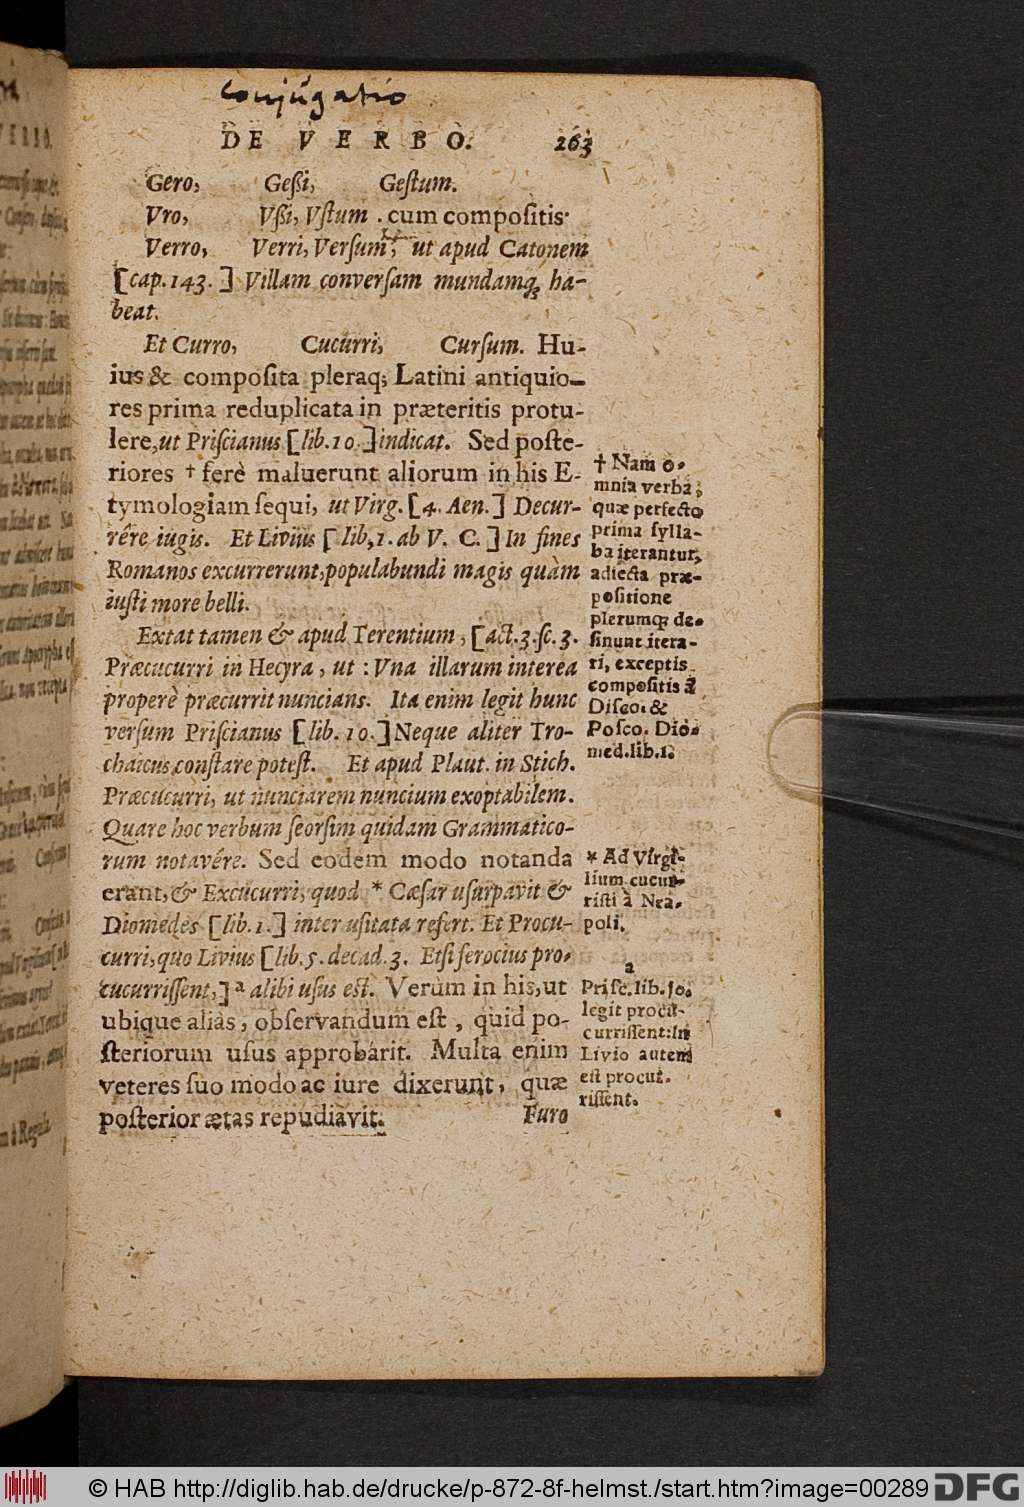 Conjugatio
DE VERBO. 263
Gero, Geßi, Geſtum.
Vro, Vßi, Vſtum . cum compoſitis.
Verro, Verri, Verſum, ut apud Catonem
[cap. 143. ] Villam converſam mundamq́ʒ ha-
beat.
Et Curro, Cucurri, Curſum. Hu-
ius & compoſita pleraq; Latini antiquio-
res prima reduplicata in præteritis protu-
lere, ut Priſcianus [lib. 10.] indicat. Sed poſte-
riores † ferè maluerunt aliorum in his E-
tymologiam ſequi, ut Virg. [4. Aen.] Decur-
rêre iugis. Et Livius [lib, 1. ab V. C. ] In fines
Romanos excurrerunt, populabundi magis quàm
iuſti more belli.
Extat tamen & apud Terentium, [act. 3. ſc. 3.
Præcucurri in Hecyra, ut : Vna illarum interea
properè præcurrit nuncians. Ita enim legit hunc
verſum Priſcianus [lib. 10.] Neque aliter Tro-
chaicus conſtare poteſt. Et apud Plaut. in Stich.
Præcucurri, ut nunciarem nuncium exoptabilem.
Quare hoc verbum ſeorſim quidam Grammatico-
rum notavére. Sed eodem modo notanda
erant, & Excucurri, quod * Cæſar uſurpavit &
Diomedes [lib. 1.] inter uſitata refert. Et Procu-
curri, quo Livius [lib. 5. decad. 3. Etſi ferocius pro-
cucurriſſent,] a alibi uſus eſt. Verùm in his, ut
ubique aliàs, obſervandum eſt, quid po-
ſteriorum uſus approbârit. Multa enim
veteres ſuo modo ac iure dixerunt, quæ
poſterior ætas repudiavit. Furo
† Nam o-
mnia verba,
quæ perfecto
prima ſylla-
ba iterantur,
adiecta præ-
poſitione
plerumq; de-
ſinunt itera-
ri, exceptis
compoſitis à
Diſco. &
Poſco. Dio-
med. lib. 1.
* Ad Virgi-
lium cucur-
riſti à Nea-
poli.
a
Priſc. lib. 10.
legit procu-
curriſſent: In
Livio autem
eſt procur-
riſſent.
© HAB http://diglib.hab.de/drucke/p-872-8f-helmst./start.htm?image=00289 DFG